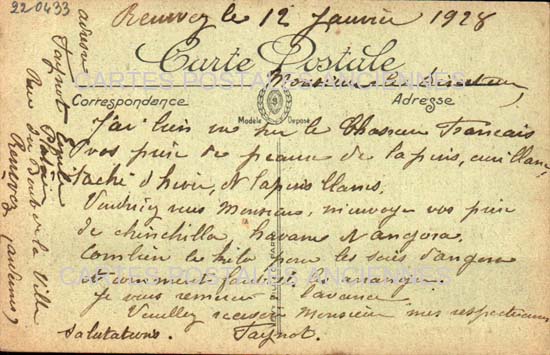 220433
Renwez le 12 Janvier 1928
Carte Postale
CARTES POSTALES ANCIENNES
Monsieur le Directeur,
Correspondance
Adresse
Modèle Déposé
J'ai bien vu sur le Chasseur Francais
vos prix de peaux de lapins,
taché d'hiver, & lapins blancs.
Voudriez vous Monsieur, m'envoyer vos prix
de chinchilla, havane & angora.
Combien le kilo pour les soies d'angora
et comment faut il les arranger.
CARTES POSTALES ANCIENNES
Je vous remercie d'avance.
Veuillez recevoir Monsieur mes respectueuses
salutations. Taynot.
adresse
Taynot
Rue du Bout de la Ville
Renwez (Ardennes)